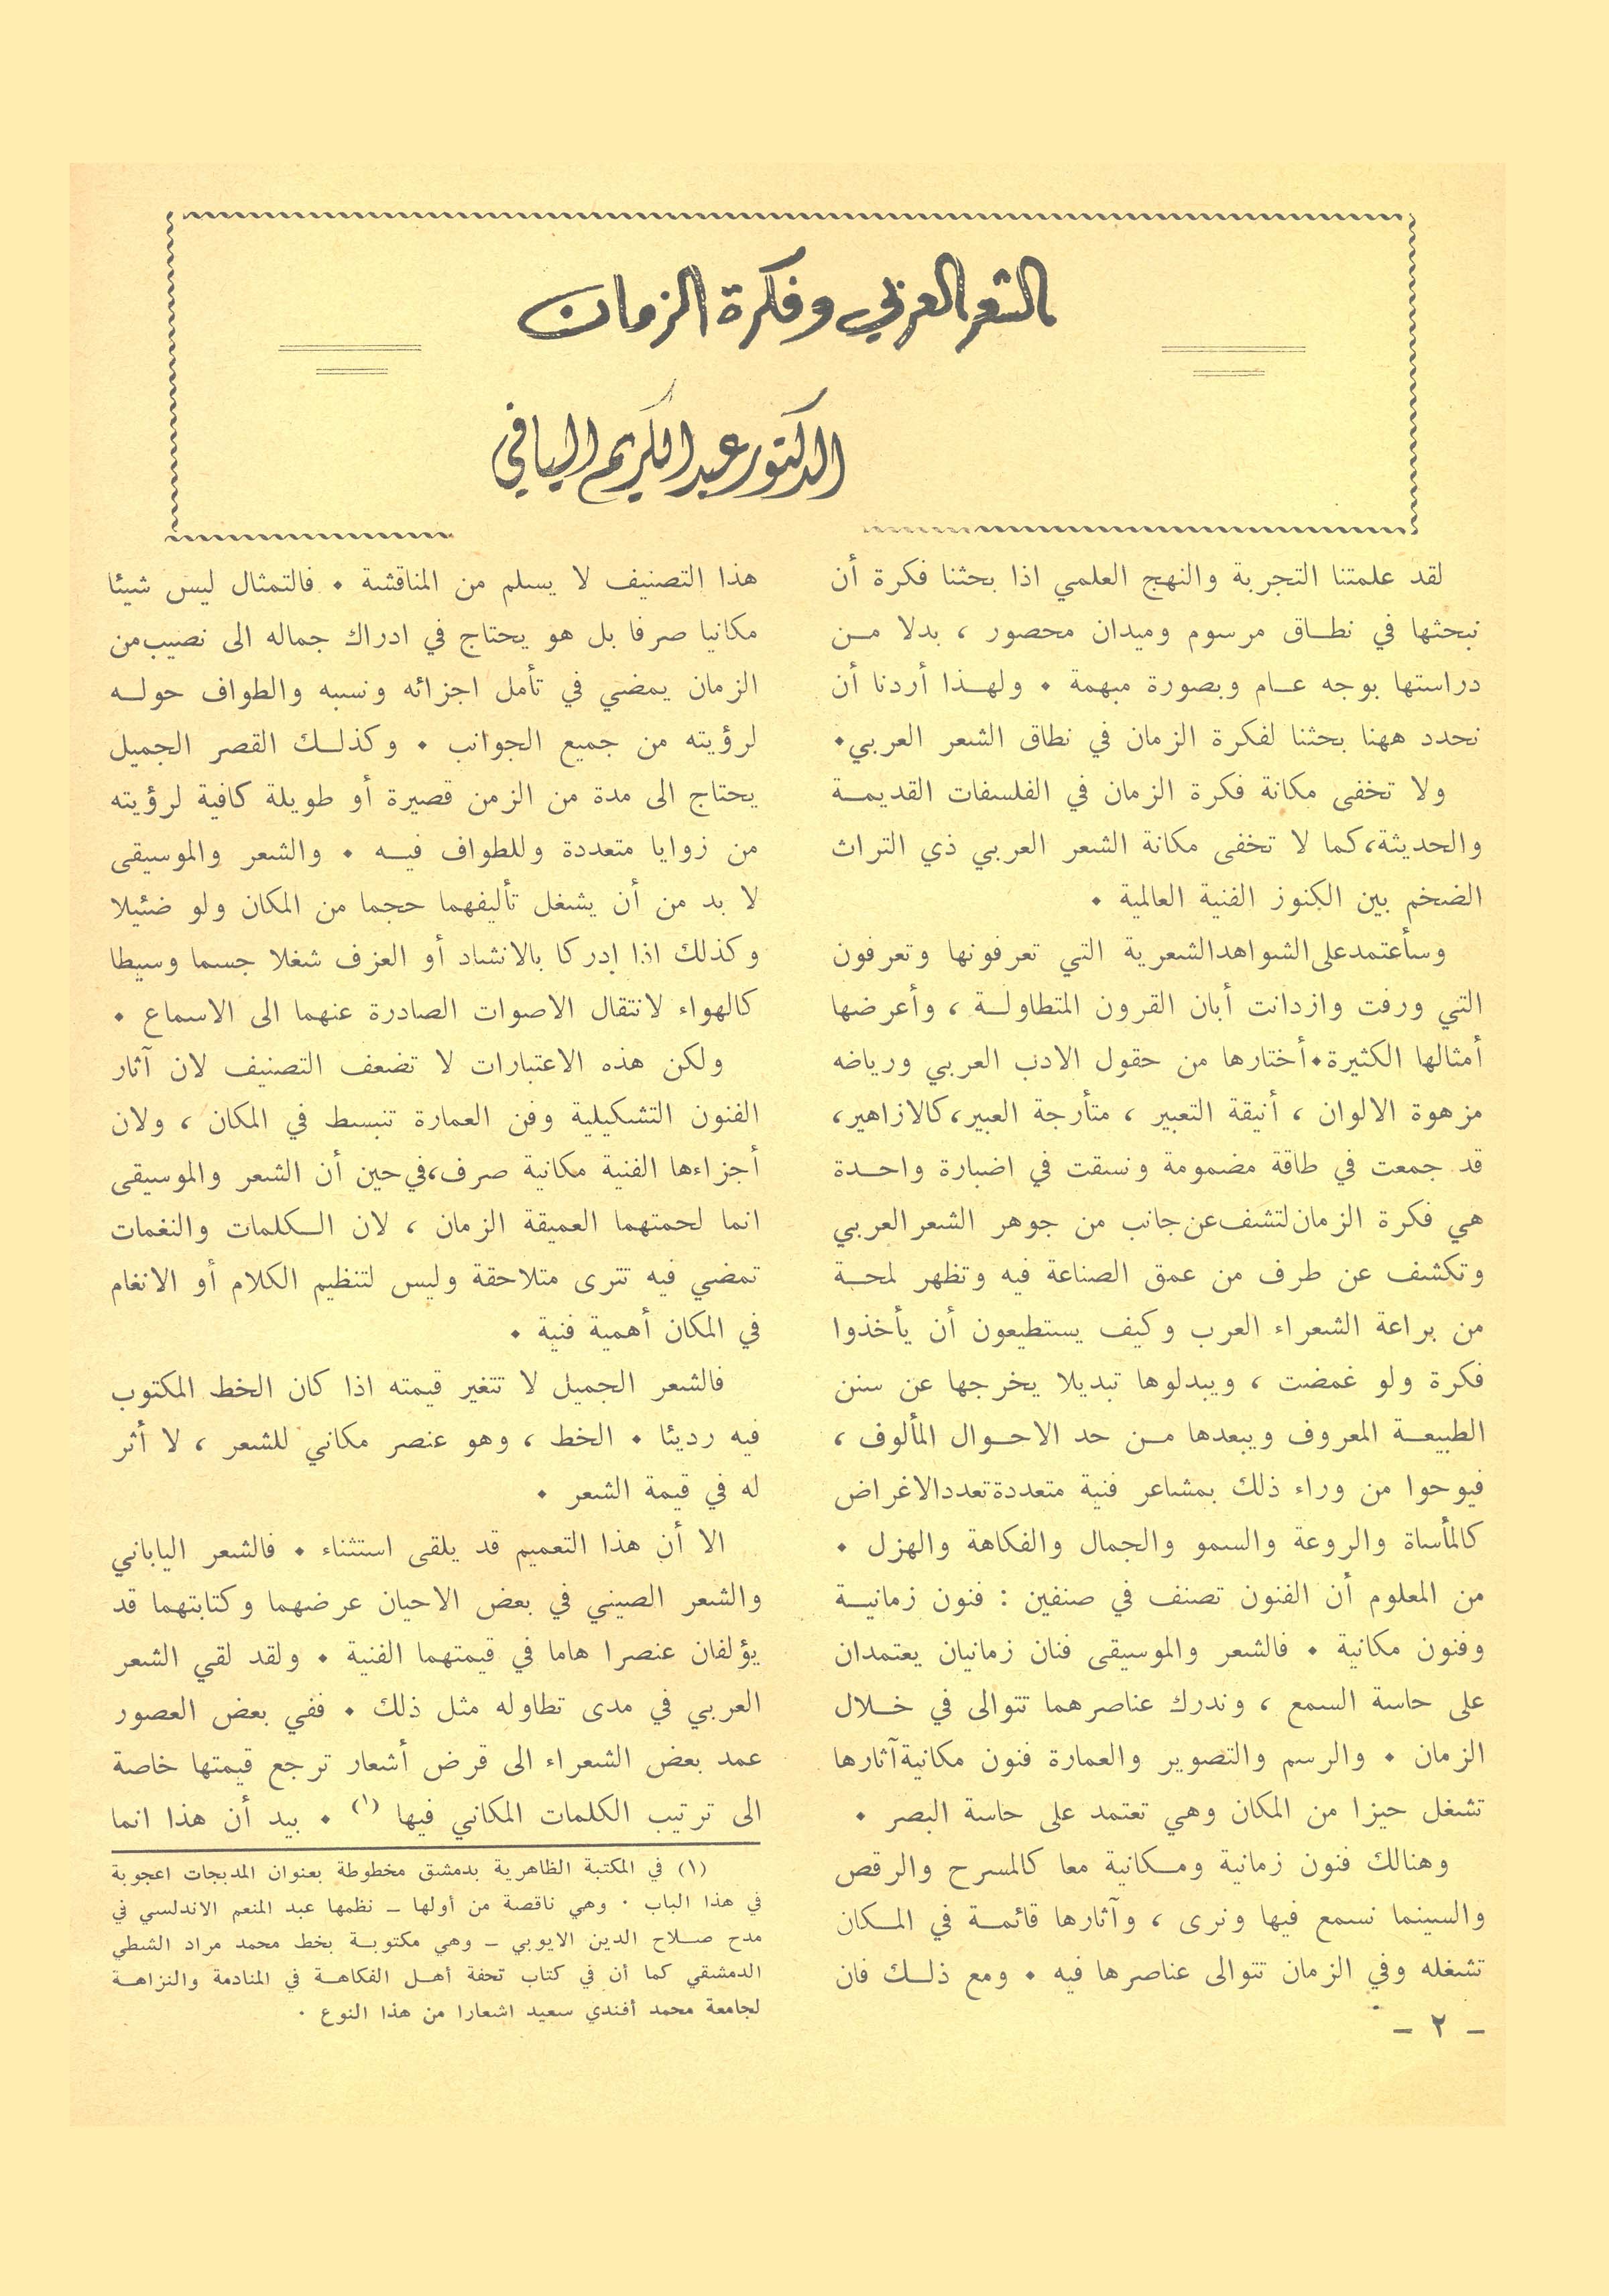 الشعر العربي وفكرة الزمان
الدكتور عبد الكريم اليافي
لقد علمتنا التجربة والنهج العلمي اذا بحثنا فكرة أن
نبحثها في نطاق مرسوم وميدان محصور ، بدلا من
دراستها بوجه عام وبصورة مبهمة . ولهذا أردنا أن
نحدد ههنا بحثنا لفكرة الزمان في نطاق الشعر العربي.
ولا تخفى مكانة فكرة الزمان في الفلسفات القديمة
والحديثة،كما لا تخفى مكانة الشعر العربي ذي التراث
الضخم بين الكنوز الفنية العالمية .
وسأعتمد على الشواهد الشعرية التي تعرفونها وتعرفون
التي ورفت وازدانت أبان القرون المتطاولة ، وأعرضها
أمثالها الكثيرة.أختارها من حقول الادب العربي ورياضه
مزهوة الالوان ، أنيقة التعبير ، متأرجة العبير،كالازاهير،
قد جمعت في طاقة مضمومة ونسقت في اضبارة واحدة
هي فكرة الزمان لتشف عن جانب من جوهر الشعر العربي
وتكشف عن طرف من عمق الصناعة فيه وتظهر لمحة
من براعة الشعراء العرب وكيف يستطيعون أن يأخذوا
فكرة ولو غمضت ، ويبدلوها تبديلا يخرجها عن سنن
الطبيعة المعروف ويبعدها من حد الاحوال المألوف ،
فيوحوا من وراء ذلك بمشاعر فنية متعددة تعدد الاغراض
كالمأساة والروعة والسمو والجمال والفكاهة والهزل .
من المعلوم أن الفنون تصنف في صنفين : فنون زمانية
وفنون مكانية . فالشعر والموسيقى فنان زمانيان يعتمدان
على حاسة السمع ، وندرك عناصرهما تتوالى في خلال
الزمان . والرسم والتصوير والعمارة فنون مكانية آثارها
تشغل حيزا من المكان وهي تعتمد على حاسة البصر .
وهنالك فنون زمانية ومكانية معا كالمسرح والرقص
والسينما نسمع فيها ونرى ، وآثارها قائمة في المكان
تشغله وفي الزمان تتوالى عناصرها فيه . ومع ذلك فان
هذا التصنيف لا يسلم من المناقشة . فالتمثال ليس شيئا
مكانيا صرفا بل هو يحتاج في ادراك جماله الى نصيب من
الزمان يمضي في تأمل اجزائه ونسبه والطواف حوله
لرؤيته من جميع الجوانب . وكذلك القصر الجميل
يحتاج الى مدة من الزمن قصيرة أو طويلة كافية لرؤيته
من زوايا متعددة وللطواف فيه . والشعر والموسيقى
لا بد من أن يشغل تأليفهما حجما من المكان ولو ضئيلا
وكذلك اذا إدركا بالانشاد أو العزف شغلا جسما وسيطا
كالهواء لانتقال الاصوات الصادرة عنهما الى الاسماع .
ولكن هذه الاعتبارات لا تضعف التصنيف لان آثار
الفنون التشكيلية وفن العمارة تنبسط في المكان ، ولان
أجزاءها الفنية مكانية صرف،في حين أن الشعر والموسيقى
انما لحمتهما العميقة الزمان ، لان الكلمات والنغمات
تمضي فيه تترى متلاحقة وليس لتنظيم الكلام أو الانغام
في المكان أهمية فنية .
فالشعر الجميل لا تتغير قيمته اذا كان الخط المكتوب
فيه رديئا . الخط ، وهو عنصر مكاني للشعر ، لا أثر
له في قيمة الشعر .
الا أن هذا التعميم قد يلقى استثناء . فالشعر الياباني
والشعر الصيني في بعض الاحيان عرضهما وكتابتهما قد
يؤلفان عنصرا هاما في قيمتهما الفنية . ولقد لقي الشعر
العربي في مدى تطاوله مثل ذلك . ففي بعض العصور
عمد بعض الشعراء الى قرض أشعار ترجع قيمتها خاصة
الى ترتيب الكلمات المكاني فيها (١) . بيد أن هذا انما
(١) في المكتبة الظاهرية بدمشق مخطوطة بعنوان المدبجات اعجوبة
في هذا الباب . وهي ناقصة من أولها – نظمها عبد المنعم الاندلسي في
مدح صلاح الدين الايوبي – وهي مكتوبة بخط محمد مراد الشطي
الدمشقي كما أن في كتاب تحفة أهل الفكاهة في المنادمة والنزاهة
لجامعة محمد أفندي سعيد اشعارا من هذا النوع .
– ٢ –